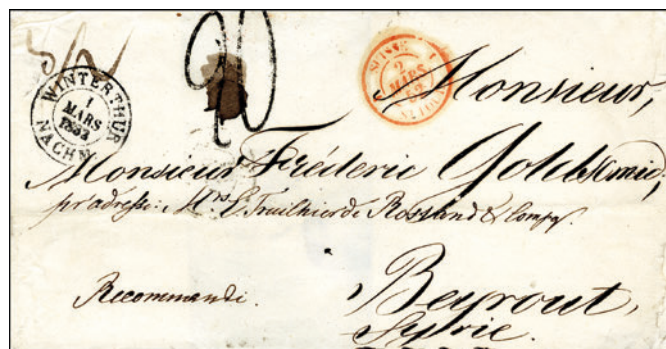 20
WINTERTHUR
1
MARS
1852
NACHM
SUISSE
2
MARS
52
Monsieur,
Monsieur Fréderic Goldschmid,
pr adresse: Mrs & Rossand & Compg.
Recommandé.
Beyrout,
Syrie.